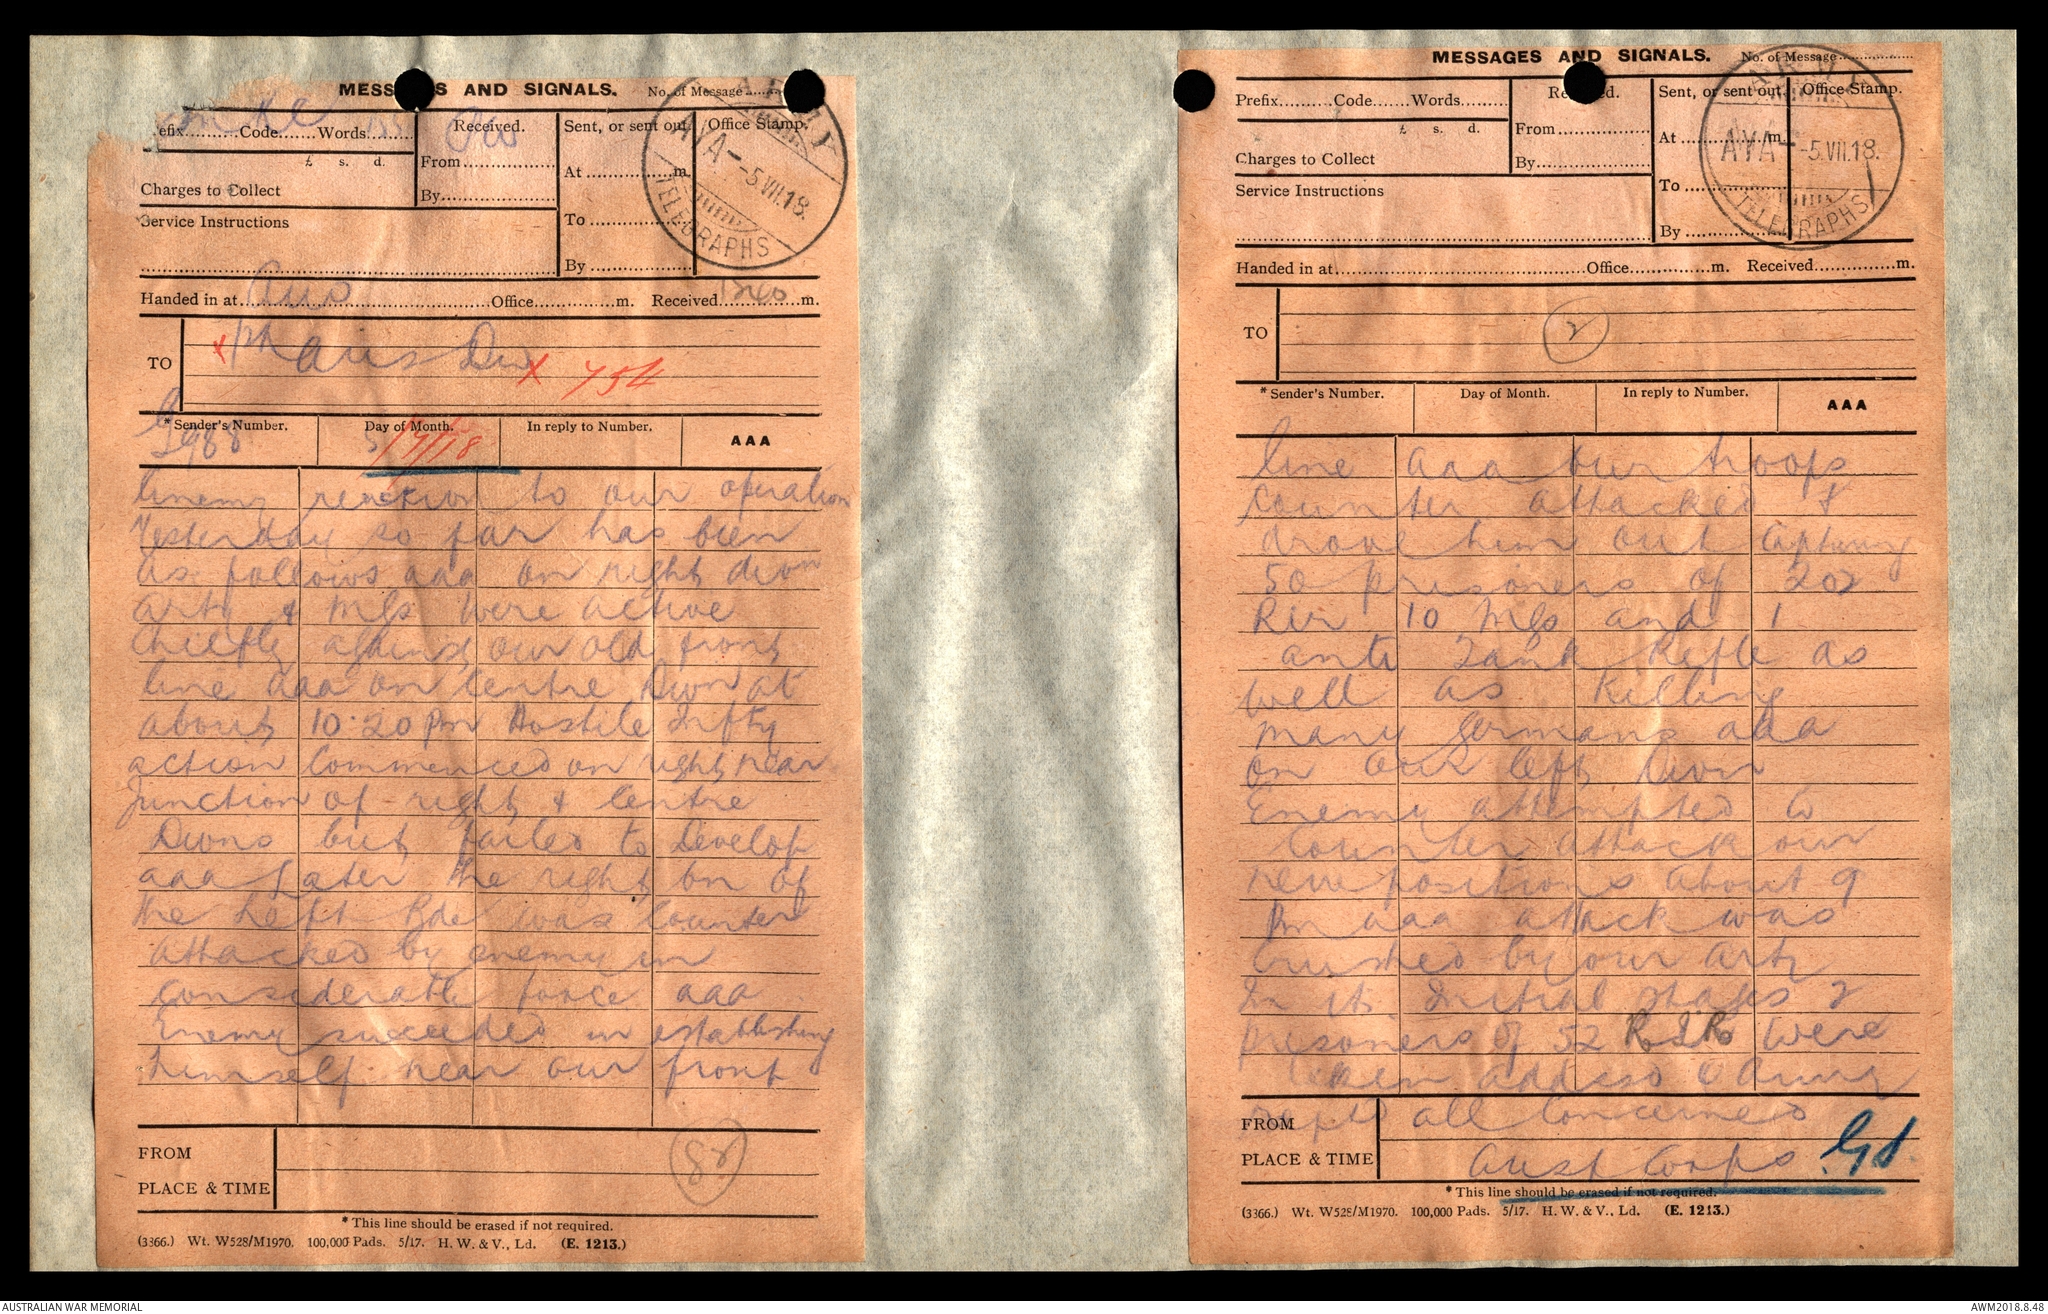 MESSAGES AND SIGNALS. No. of Message
Prefix Code Words
Received.
Sent, or sent out
Office Stamp.
£ s. d.
From
At m.
Charges to Collect
By
Service Instructions
To
By
ARMY
AYA -5 VII.18.
TELEGRAPHS
Handed in at Aus Office m. Received m.
TO
x Aus Div x 754
* Sender's Number. Day of Month. In reply to Number AAA
G988 5/7/18
Enemy reaction to our operation
Yesterday so far has been
as follows aaa on right divn
arty & Mgs were active
chiefly against our old front
line aaa on Centre Divn at
about 10.20 Pm Hostile Infty
action Commenced on right near
junction of right & Centre
Divns but failed to Develop
aaa Later the right bn of
the Left Bde was counter
attacked by enemy in
considerable force aaa
Enemy succeeded in establishing
himself near our front
FROM
PLACE & TIME
* This line should be erased if not required.
(3366.) Wt. W528/M1970. 100,000 Pads. 5/17. H. W. & V., Ld. (E. 1213.)
MESSAGES AND SIGNALS. No. of Message
Prefix Code Words
Received.
Sent, or sent out
Office Stamp.
£ s. d.
From
At m.
Charges to Collect
By
Service Instructions
To
By
ARMY
AYA -5.VII.18.
TELEGRAPHS
Handed in at Office m. Received m.
TO
2
* Sender's Number. Day of Month. In reply to Number. AAA
line aaa Our troops
Counter attacked &
drove him out Capturing
50 prisoners of 202
Rir 10 Mgs and 1
anti Tank Rifle as
well as Killing
many Germans aaa
On Our left Divn
Enemy attempted to
Counter attack our
new positions about 9
Pm aaa attack was
crushed by our arty
In its Initial stages 2
prisoners of 52 R I R were
taken addsso Army
reptd all Concerned
FROM
PLACE & TIME
Aust Corps
GS
* This line should be erased if not required.
(3366.) Wt. W528/M1970. 100,000 Pads. 5/17. H. W. & V., Ld. (E. 1213.)
AUSTRALIAN WAR MEMORIAL
AWM2018.8.48